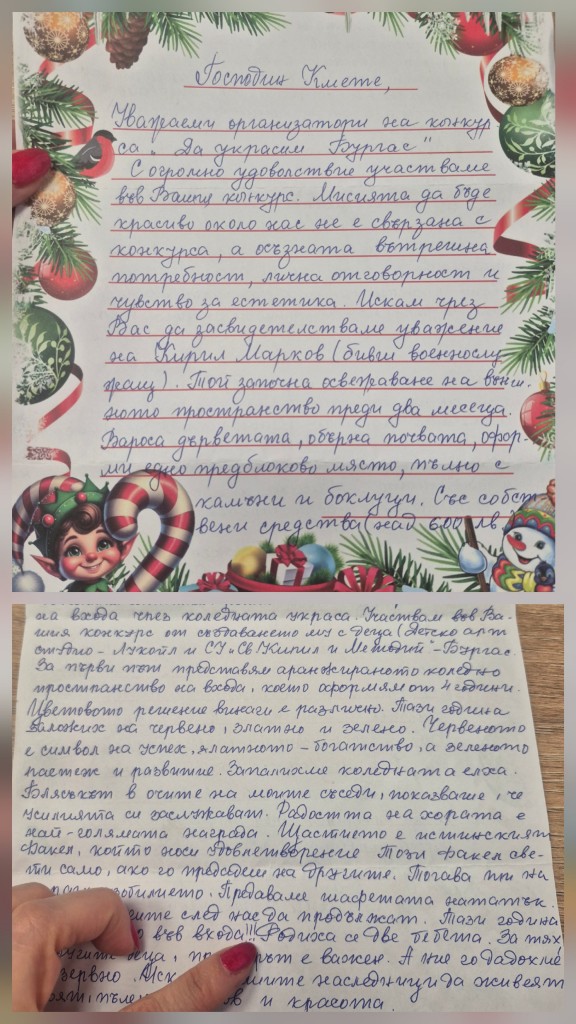 Господин Кмете,
Уважаеми организатори на конкур
са „Да украсим Бургас"
С огромно удоволствие участваме
във Вашия конкурс. Мисията да бъде
красиво около нас не е свързана с
конкурса, а осъзната вътрешна
потребност, лична отговорност и
чувство за естетика. Искам чрез
Вас да засвидетелстваме уважение
на Кирил Марков (бивш военнослу
жащ). Той започна освежаване на външ.
ното пространство преди два месеца.
Вароса дърветата, обърна почвата, офор-
ми едно предблоково място, пълно с
камъни и боклуци. Със собст
вени средства (над 600 лв.
на входа чрез коледната украса. Участвам във Ва-
шия конкурс от създаването му с деца (Детско арт
студио - Лукойл и СУ „Св. Кирил и Методий" - Бургас.
За първи път представям аранжираното коледно
пространство на входа, което оформям от 4 години.
Цветовото решение винаги е различно. Тази година
заложих на червено, златно и зелено. Червеното
е символ на успех, златното - богатство, а зеленото
растеж и развитие. Запалихме коледната елха.
Блясъкът в очите на моите съседи, показваше, че
усилията си заслужават. Радостта на хората е
най-голямата награда. Щастието е истинският
факел, който носи удовлетворение Този факел све-
ти само, ако го предадем на другите. Тогава
Предаваме щафетата нататък.
след нас да продължат. Тази година
във входа!!! Родиха се две бебета. За тях
деца, е важен. А ние го дадохме
наследници да живеят
и красота.